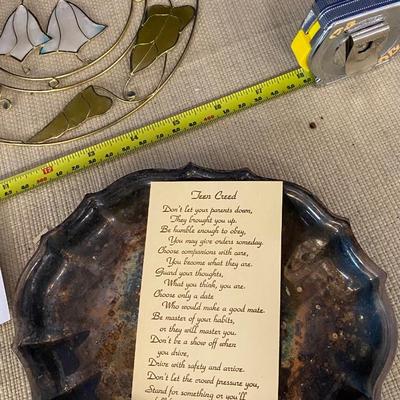 Teen Creed
Don't let your parents down,
They brought you up.
Be humble enough to obey,
You may give orders someday.
Choose companions with care,
You become what they are.
Guard your thoughts,
What you think, you are.
Choose only a date
Who would make a good mate.
Be master of your habits,
or they will master you.
Don't be a show off when
you drive,
Drive with safety and arrive.
Don't let the crowd pressure you,
Stand for something or you'll